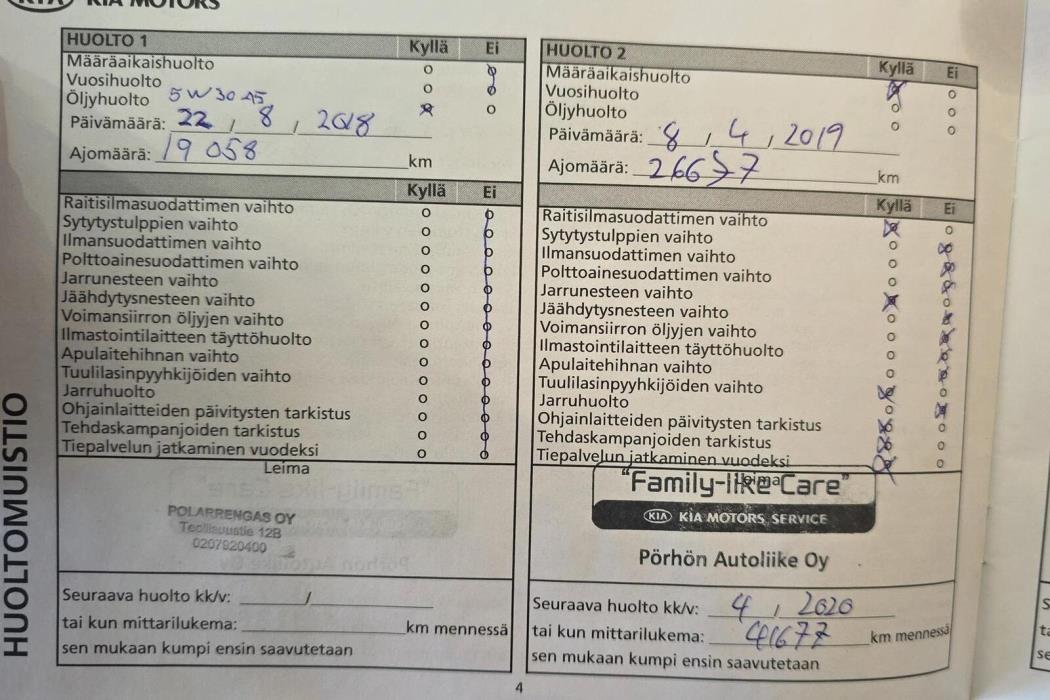 KIA KIA MOTORS
HUOLTO 1 Kyllä Ei
Määräaikaishuolto
Vuosihuolto
Öljyhuolto 5W30 A5
Päivämäärä: 22 / 8 / 2018
Ajomäärä: 19 058 km
Kyllä Ei
Raitisilmasuodattimen vaihto
Sytytystulppien vaihto
Ilmansuodattimen vaihto
Polttoainesuodattimen vaihto
Jarrunesteen vaihto
Jäähdytysnesteen vaihto
Voimansiirron öljyjen vaihto
Ilmastointilaitteen täyttöhuolto
Apulaitehihnan vaihto
Tuulilasinpyyhkijöiden vaihto
Jarruhuolto
Ohjainlaitteiden päivitysten tarkistus
Tehdaskampanjoiden tarkistus
Tiepalvelun jatkaminen vuodeksi
Leima
POLARRENGAS OY
Teollisuustie 12B
0207920400
Seuraava huolto kk/v: /
tai kun mittarilukema: km mennessä
sen mukaan kumpi ensin saavutetaan
HUOLTO 2 Kyllä Ei
Määräaikaishuolto
Vuosihuolto
Öljyhuolto
Päivämäärä: 8 / 4 / 2019
Ajomäärä: km
Kyllä Ei
Raitisilmasuodattimen vaihto
Sytytystulppien vaihto
Ilmansuodattimen vaihto
Polttoainesuodattimen vaihto
Jarrunesteen vaihto
Jäähdytysnesteen vaihto
Voimansiirron öljyjen vaihto
Ilmastointilaitteen täyttöhuolto
Apulaitehihnan vaihto
Tuulilasinpyyhkijöiden vaihto
Jarruhuolto
Ohjainlaitteiden päivitysten tarkistus
Tehdaskampanjoiden tarkistus
Tiepalvelun jatkaminen vuodeksi
Leima
"Family-like Care"
KIA KIA MOTORS SERVICE
Pörhön Autoliike Oy
Seuraava huolto kk/v: 4 / 2020
tai kun mittarilukema: 41677 km mennessä
sen mukaan kumpi ensin saavutetaan
HUOLTOMUISTIO
4